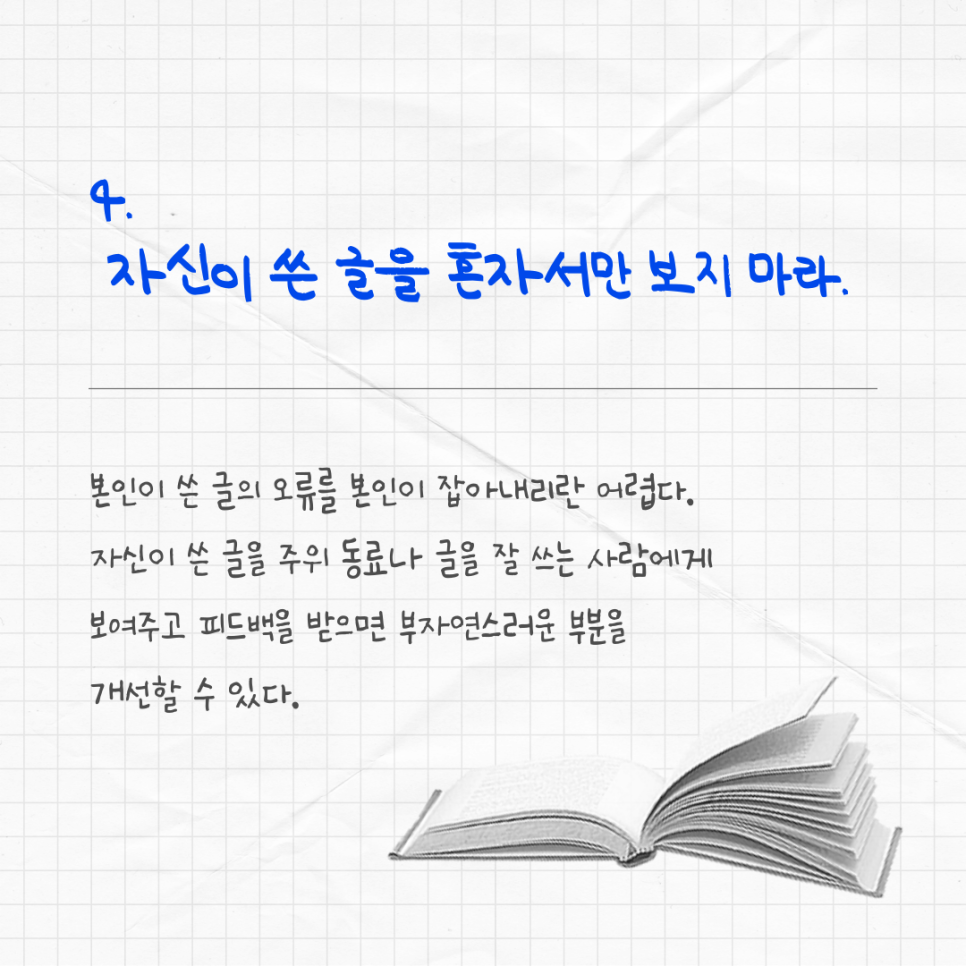 4.
자신이 쓴 글을 혼자서만 보지 마라.
본인이 쓴 글의 오류를 본인이 잡아내리란 어렵다.
자신이 쓴 글을 주위 동료나 글을 잘 쓰는 사람에게
보여주고 피드백을 받으면 부자연스러운 부분을
개선할 수 있다.